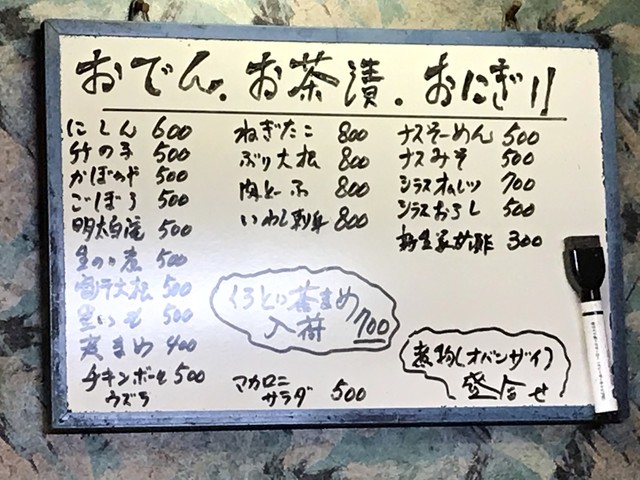 おでん.お茶漬.おにぎり
にしん 600
竹の子 500
かぼちゃ 500
ごぼう 500
明太白滝 500
500
大根 500
500
豆 まめ 400
チキンボール 500
ウズラ
ねぎたこ 800
ぶり大根 800
肉とふ 800
いわし刺身 800
くろとり 茶まめ
入荷 700
マカロニ
サラダ 500
ナスそーめん 500
ナスみそ 500
シラスオムレツ 700
シラスおろし 500
酢 300
煮物(オバンザイ)
盛合せ